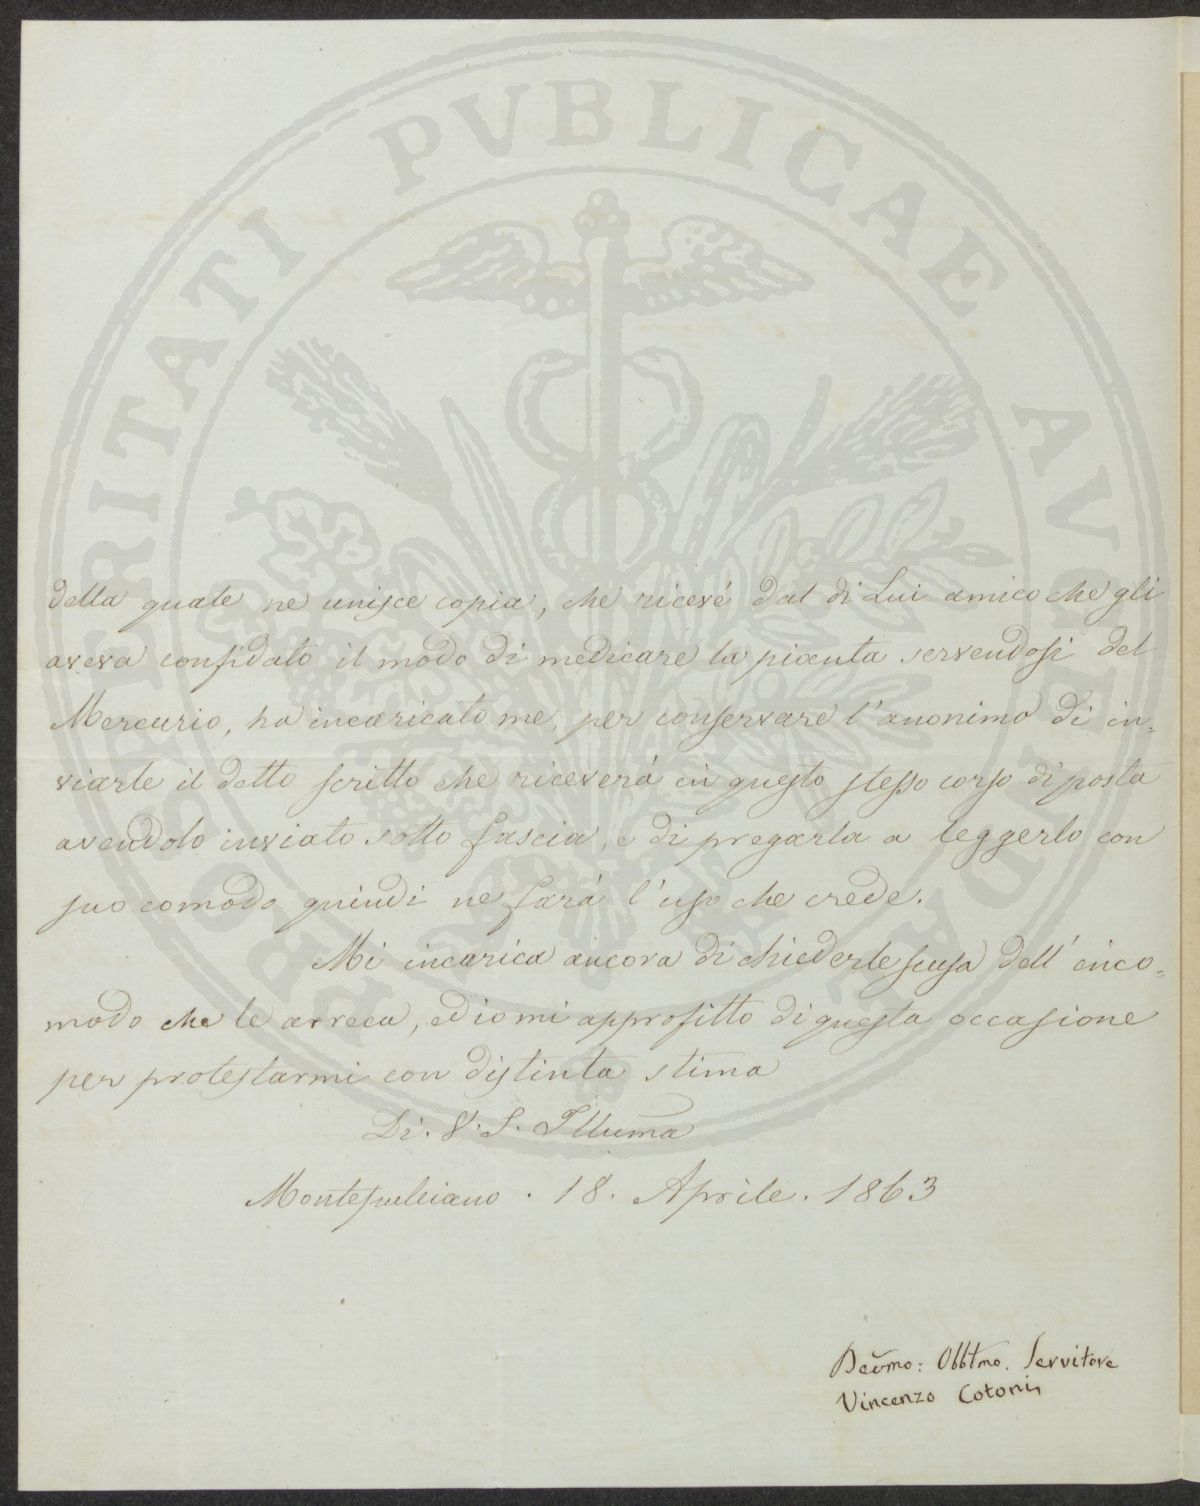 della quale ne unisce copia, che ricevé dal di Lui amico che gli
aveva confidato il modo di medicare la pianta servendosi del
Mercurio, ha incaricato me, per conservare l'anonimo di in=
viarle il detto scritto che riceverá in questo stesso corso di posta
avendolo inviato sotto fascia, e di pregarla a leggerlo con
suo comodo quindi ne fará l'uso che crede.
Mi incarica ancora di chiederle scusa dell' inco=
modo che le arreca, ed io mi approfitto di questa occasione
per protestarmi con distinta stima
Di. V. S. Illuma
Montepulciano. 18. Aprile. 1863
Devmo: Obbtmo. Servitore
Vincenzo Cotonis
PROSPERITATI PVBLICAE AVGENDAE